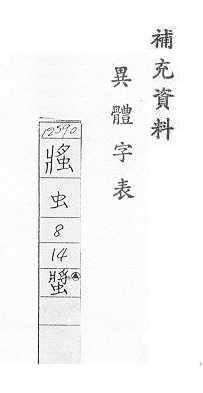 補充資料
異體字表
12590
虫
8
14
螿